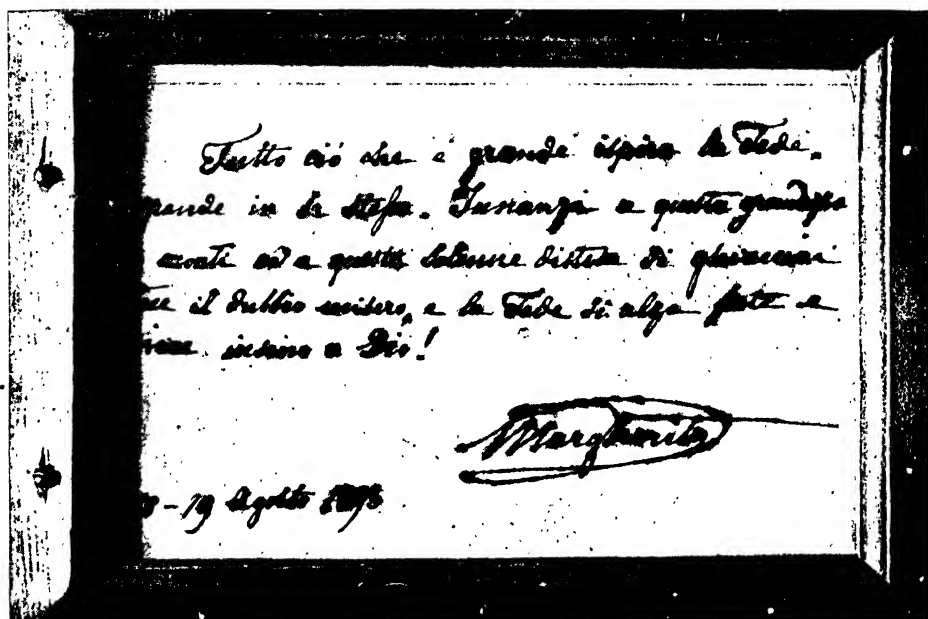 Tutto ciò che è grande ispira la Fede,
grande in se stessa. Innanzi a questa grandiosa
monti ed a questa solenne distesa di ghiacciai
il dubbio misero, e la Fede si alza forte e
insino a Dio!
Margherita
18-19 Agosto 1893